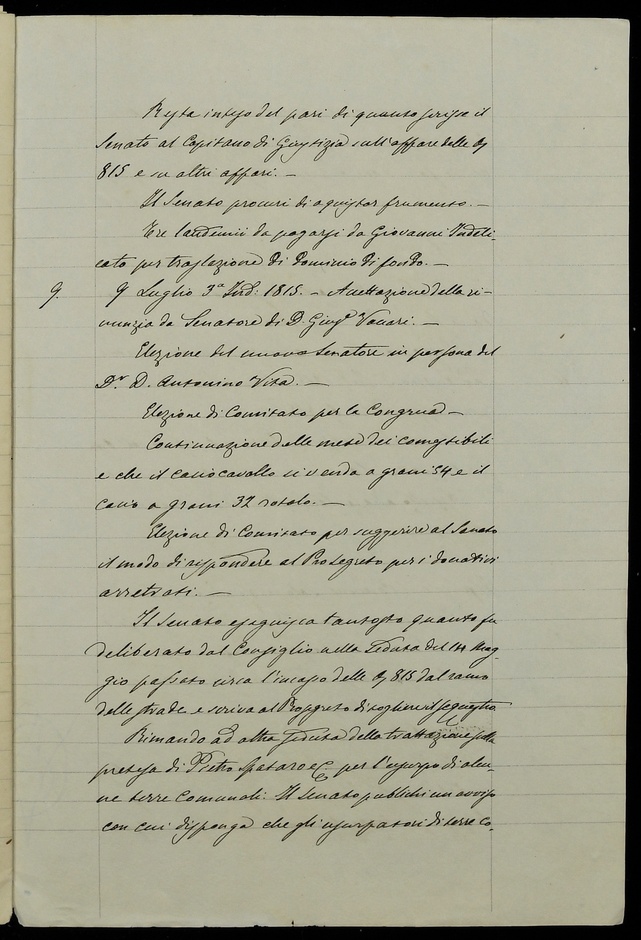 Resta inteso del pari di quanto scrisse il
Senato al Capitano di Giustizia sull'affare delle
815 e su altri affari. —
Il Senato procuri di aquistar frumento. —
Tre laudemii da pagarsi da Giovanni Indeli-
cato per traslazione di dominio di fondo. —
9. 9 Luglio 3ª Ind: 1815. — Accettazione della ri-
nunzia da Senatore di D. Giusᵉ Vaccari. —
Elezione del nuovo Senatore in persona del
Dʳ D. Antonino Vita. —
Elezione di Comitato per la Congrua —
Continuazione delle mete dei comestibili
e che il caciocavallo si venda a grani 34 e il
cacio a grani 32 rotolo. —
Elezione di Comitato per suggerire al Senato
il modo di rispondere al Prosegreto per i donativi
arretrati. —
Il Senato eseguisca tantosto quanto fu
deliberato dal Consiglio nella seduta del 14 Mag-
gio passato circa l'incasso delle 815 dal ramo
delle strade e scriva al Prosegreto di togliere il sequestro
Rimando ad altra seduta della trattazione sulla
pretesa di Pietro Spataro &c per l'usurpo di alcu-
ne terre comunali: Il Senato publichi un avviso
con cui disponga che gli usurpatori di terre co-